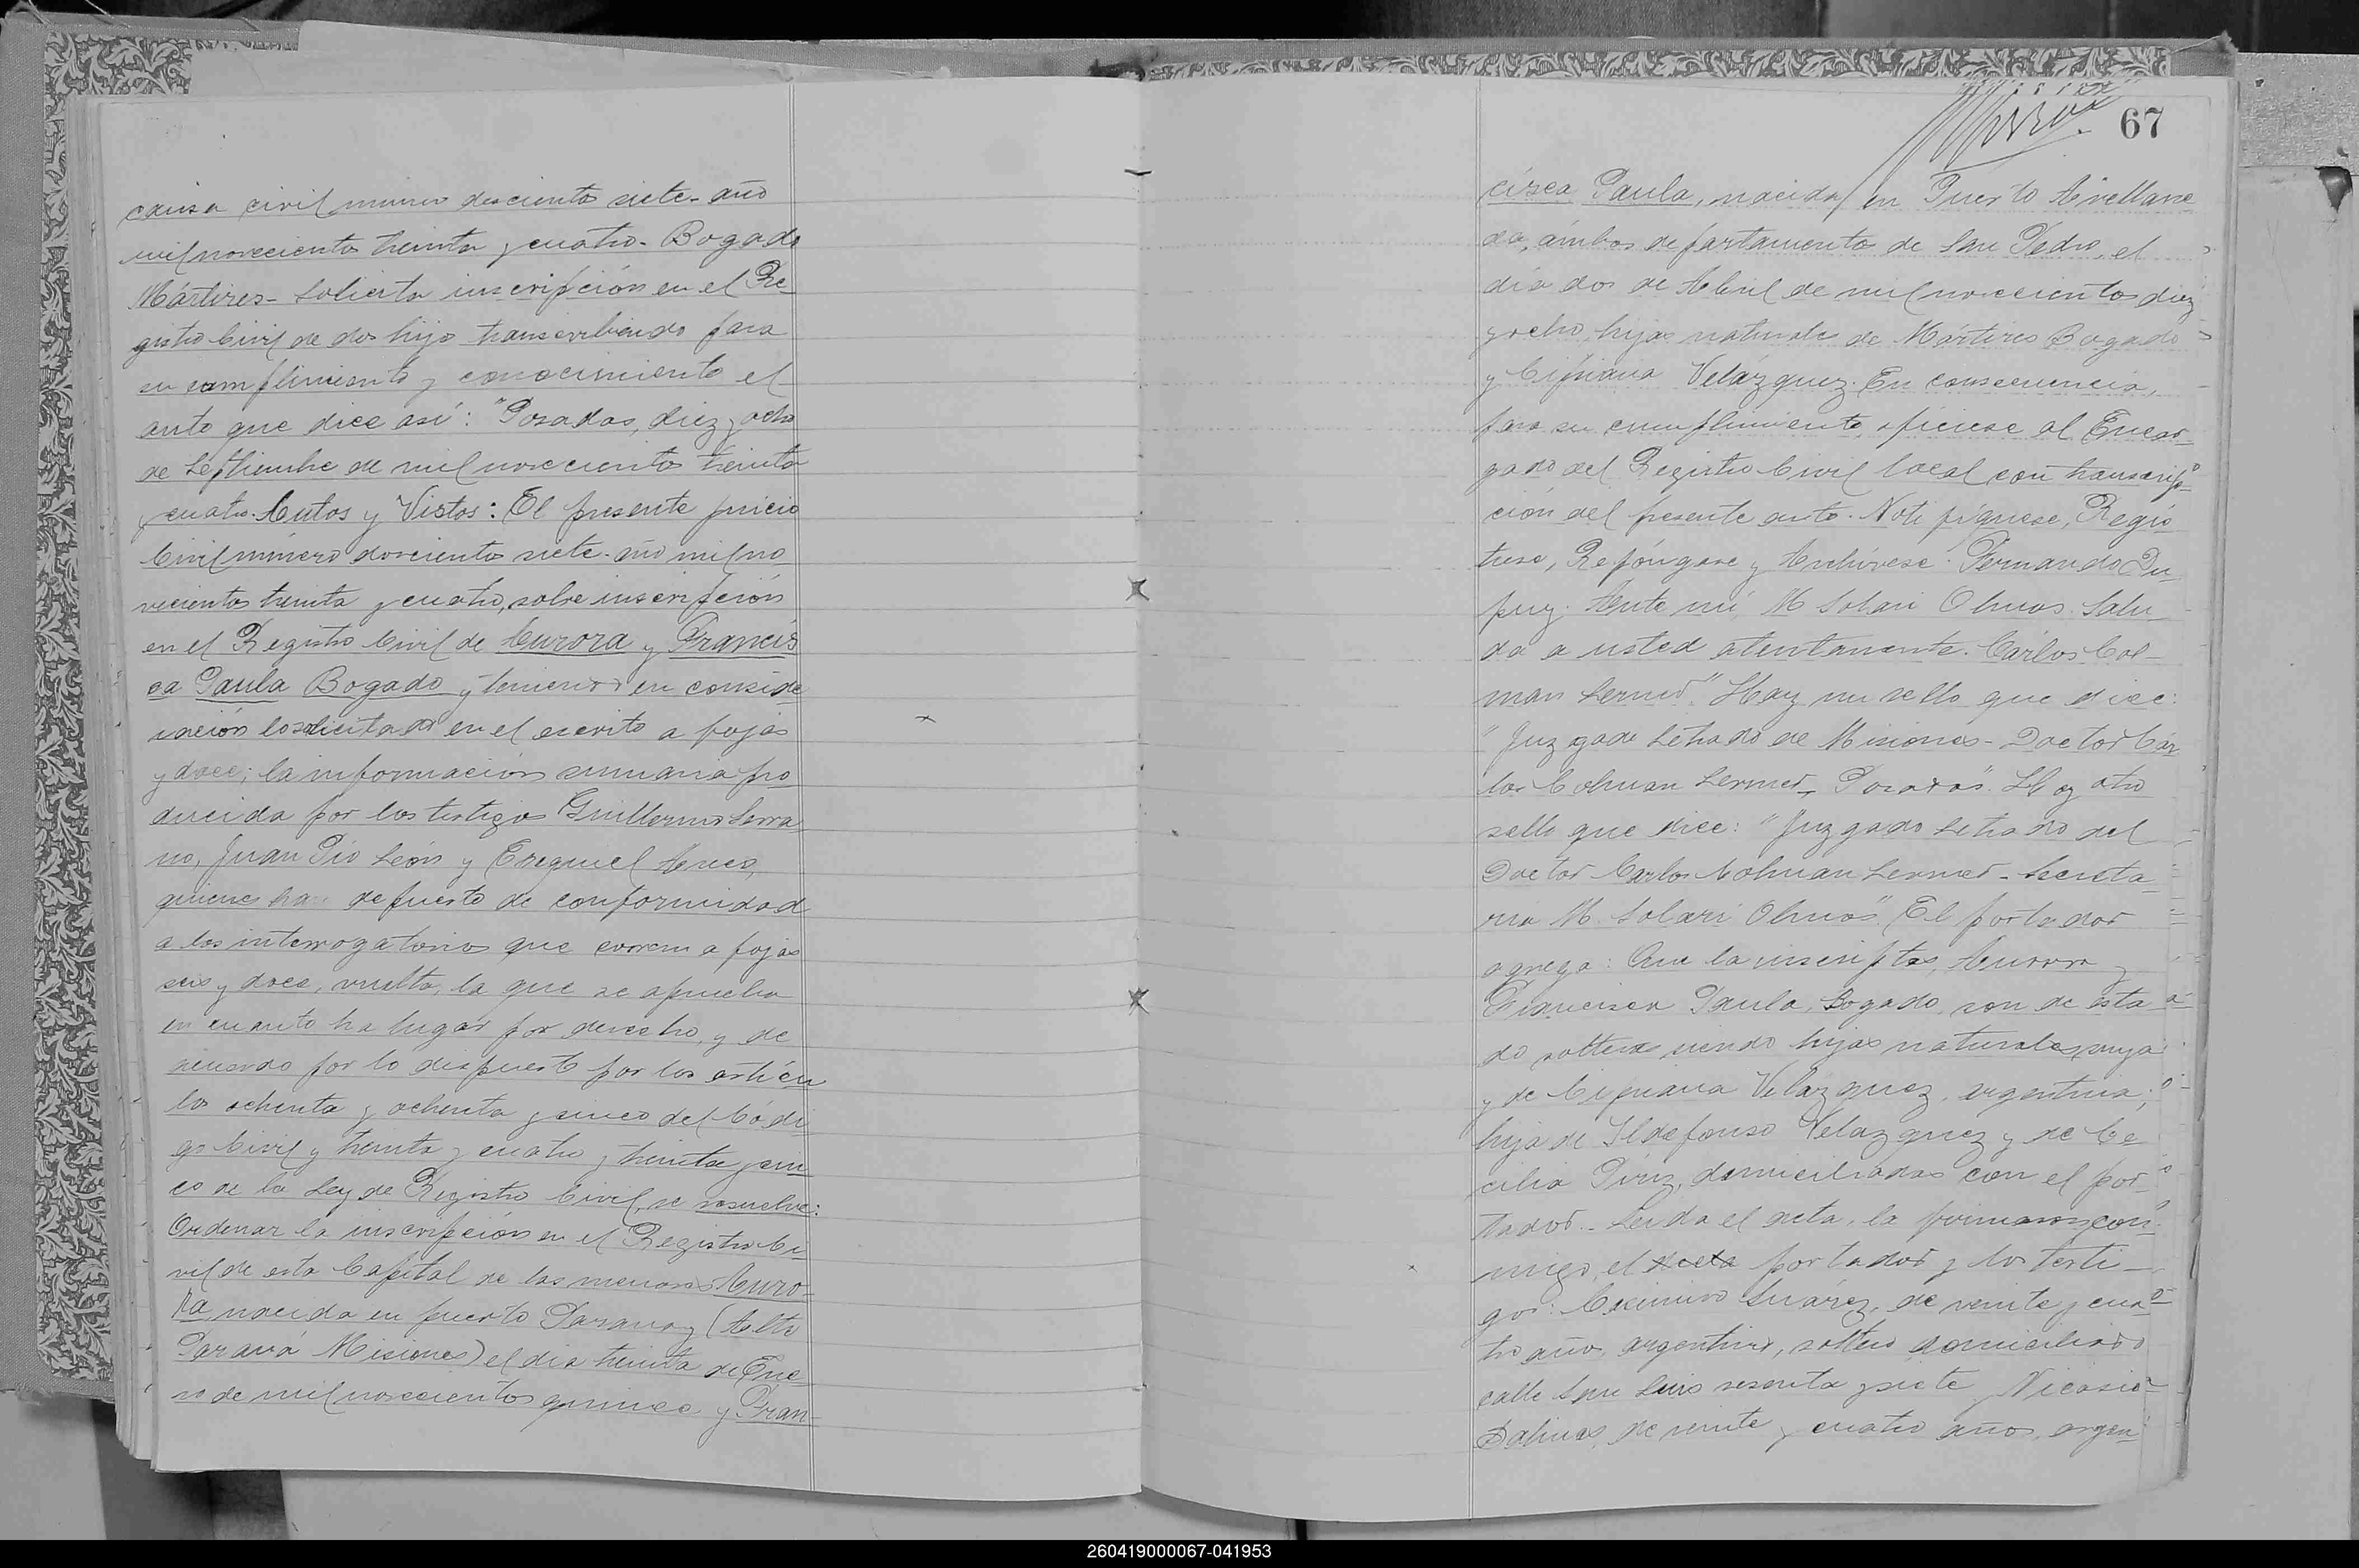 causa civil número doscientos siete- año
mil novecientos treinta y cuatro- Bogado
Mártires- Solicita inscripción en el Re-
gistro Civil de dos hijos transcribiendo para
su cumplimiento y conocimiento el
auto que dice así: "Posadas, diez y ocho
de Septiembre de mil novecientos treinta
y cuatro. Autos y Vistos: El presente juicio
Civil número doscientos siete- año mil no
vecientos treinta y cuatro, sobre inscripción
en el Registro Civil de Aurora y Francis
ca Paula Bogado y teniendo en conside
ración lo solicitado en el escrito a fojas
y doce; la información sumaria pro
ducida por los testigos Guillermo Serra
no, Juan Pío León y Ezequiel
quienes han depuesto de conformidad
a los interrogatorios que corren a fojas
seis y doce, vuelta, la que se aprueba
en cuanto ha lugar por derecho, y de
acuerdo por lo dispuesto por los artícu
los ochenta y ochenta y cinco del Códi
go Civil y treinta y cuatro y treinta y cin
co de la Ley de Registro Civil, se resuelve:
Ordenar la inscripción en el Registro Ci
vil de esta Capital de las menores Auro-
ra nacida en puerto Paranay (Alto
Paraná Misiones) el dia treinta de Ene
ro de mil novecientos quince y Fran-
67
cisca Paula, nacida en Puerto Avellane
da, ambos departamento de San Pedro, el
día dos de Abril de mil novecientos diez
y ocho, hijas naturales de Mártires Bogado
y Cipriana Velázquez. En consecuencia,
para su cumplimiento, ofíciese al Encar-
gado del Registro Civil local con transcrip-
ción del presente auto. Notifíquese, Regís
trese, Repóngase y Archívese. Fernando Du-
puy. Ante mí, M. Solari Olmos. Salu-
da a usted atentamente. Cárlos Col-
man Lerner". Hay un sello que dice:
"Juzgado Letrado de Misiones- Doctor Cár
los Colman Lerner- Posadas". Hay otro
sello que dice: "Juzgado Letrado del
Doctor Carlos Colman Lerner- Secreta
ría M. Solari Olmos". El portador
agrega: Que la inscriptas, Aurora y
Francisca Paula, Bogado, son de esta
do solteras siendo hijas naturales suya
y de Cipriana Velázquez, argentina;
hija de Ildefonso Velazquez y de Ce
cilia domiciliadas con el por-
tador.- Leída el acta, la firmaron con-
migo, el acta portador y los testi-
gos: Casimiro Suárez, de veinte y cua-
tro años, argentino, soltero domiciliado
calle San Luis sesenta y siete y Nicasio
Salinas, de veinte y cuatro años, argen-